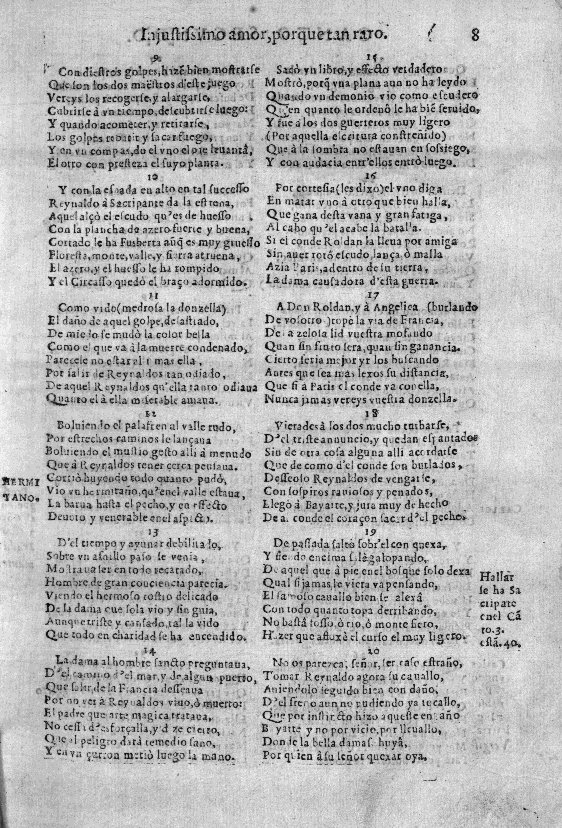 Injustissimo amor, porque tan raro. 8
9
Con diestros golpes, hizē bien mostrarse
Que son los dos maestros deste juego
Vereys los recogerse, y alargarse,
Cubrirse à vn tiempo, descubrirse luego:
Y quando acometer, y retirarse,
Los golpes rebatir y
Y en vn compas, do el vno el pie leuanta,
El otro con presteza el suyo planta.
10
Y con la espada en alto en tal successo
Reynaldo à Sacripante da la estrena,
Aquel alçò el escudo qu'es de huesso
Con la plancha de azero fuerte y buena,
Cortado le ha Fusberta añq̃ es muy gruesso
Floresta, monte, valle, y sierra atruena,
El azero, y el huesso le ha rompido
Y el Circasso quedò el braço adormido.
11
Como vido (medrosa la donzella)
El daño de aquel golpe, desastiado,
De miedo se mudò la color bella
Como el que và à la muerte condenado,
Parecele no estar alli mas ella,
Por salir de Reynaldos tan odiado,
De aquel Reynaldos qu'ella tanto odiaua
Quanto el à ella miserable amaua.
12
Boluiendo el palafren al valle rudo,
Por estrechos caminos le lançaua
Boluiendo el mustio gesto alli à menudo
Que à Reynaldos tener cerca pensaua.
Corriò huyendo todo quanto pudo,
Vio vn hermitaño, qu'en el valle estaua,
La barua hasta el pecho, y en effecto
Deuoto y venerable en el aspecto.
HERMI
TANO.
13
D'el tiempo y ayunar debilitado,
Sobre vn asnillo paso se venia,
Mostraua ser en todo recatado,
Hombre de gran conciencia parecia.
Viendo el hermoso rostro delicado
De la dama que sola vio y sin guia,
Aunque triste y cansado, tal la vido
Que todo en charidad se ha encendido.
14
La dama al hombre sancto preguntaua,
D'el camino d'el mar, y de algun puerto,
Que salir de la Francia desseaua
Por no ver à Reynaldos viuo, ò muerto:
El padre que arte magica trataua,
No cessa d'esforçalla, y dize cierto,
Que al peligro darà remedio sano,
Y en vn çurron metiò luego la mano.
15
Sacò vn libro, y effecto verdadero
Mostrò, porq̃ vna plana aun no ha leydo
Quando vn demonio vio como escudero
Quien en quanto le ordenò le ha biē seruido,
Y fue à los dos guerreros muy ligero
(Por aquella escritura constreñido)
Que à la sombra no estauan en sossiego,
Y con audacia entr'ellos entrò luego.
16
Por cortesia (les dixo) el vno diga
En matar vno à otro que bien halla,
Que gana desta vana y gran fatiga,
Al cabo qu'el acabe la batalla.
Si el conde Roldan la lleua por amiga
Sin auer rotò escudo, lança, ò malla
Azia Paris, adentro de su tierra,
La dama causadora d'esta guerra.
17
A Don Roldan, y à Angelica (burlando
De vosotros) topè la via de Francia,
De la zelosa lid vuestra mofando
Quan sin fruto sera, quan sin ganancia.
Cierto seria mejor yr los buscando
Antes que sea mas lexos su distancia,
Que si à Paris el conde va con ella,
Nunca jamas vereys vuestra donzella.
18
Vierades à los dos mucho turbarse,
D'el triste annuncio, y quedan espantados
Sin de otra cosa alguna alli acordarse
Que de como d'el conde son burlados,
Desseoso Reynaldos de vengarse,
Con sospiros rauiosos y penados,
Llegò à Bayarte, y jura muy de hecho
De al conde el coraçon sacar d'el pecho.
19
De passada saltò sobr'el con quexa,
Y siendo encima se galopando,
De aquel que à pie en el bosque solo dexa
Qual si jamas le viera va pensando,
El famoso cauallo bien se alexa
Con todo quanto topa derribando,
No basta fosso, ò rio, ò monte fiero,
Hazer que afloxe el curso el muy ligero.
Hallar
se ha Sa
cripate
en el Cā
to. 3.
está. 40.
20
No os parezca, señor, ser caso estraño,
Tomar Reynaldo agora su cauallo,
Auiendolo seguido bien con daño,
D'el freno aun no pudiendo ya tocallo,
Que por instincto hizo aqueste engaño
Bayarte y no por vicio, por lleuallo,
Donde la bella dama se huyà,
Por quien à su señor quexar oya.